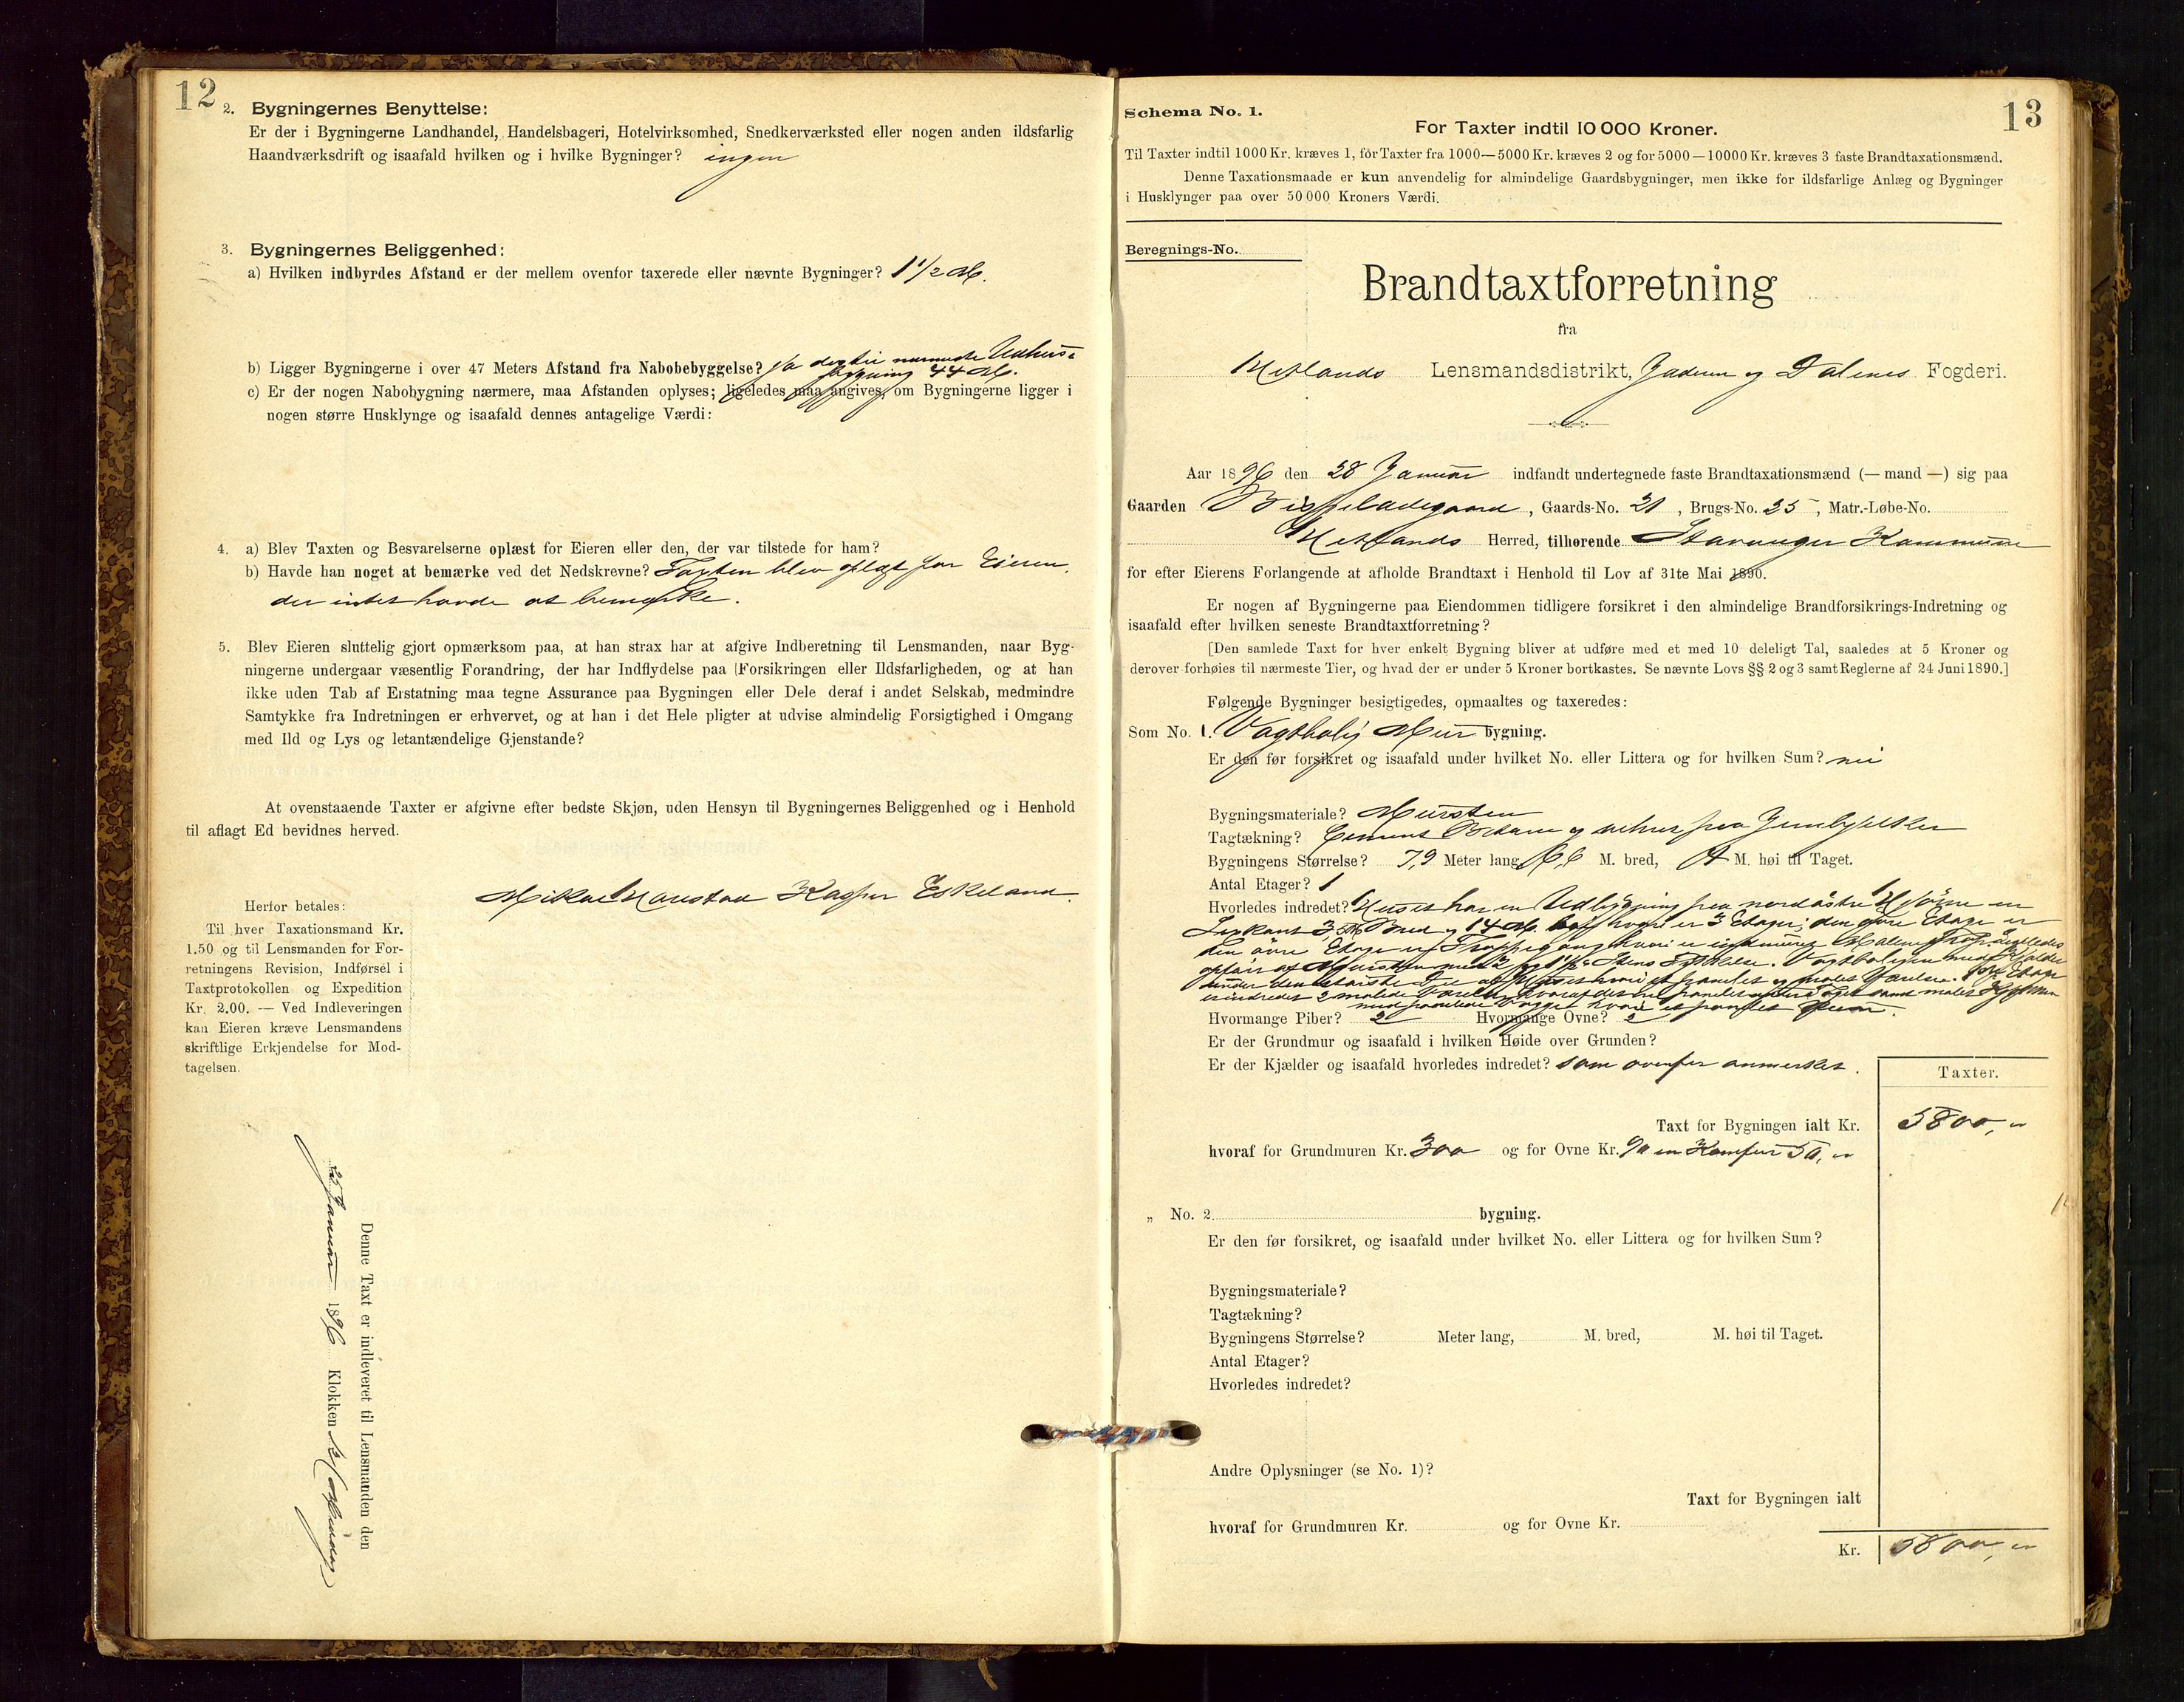 12
2. Bygningernes Benyttelse:
Er der i Bygningerne Landhandel, Handelsbageri, Hotelvirksomhed, Snedkerværksted eller nogen anden ildsfarlig
Haandværksdrift og isaafald hvilken og i hvilke Bygninger? ingen
3. Bygningernes Beliggenhed:
a) Hvilken indbyrdes Afstand er der mellem ovenfor taxerede eller nævnte Bygninger? 1 1/2 M.
b) Ligger Bygningerne i over 47 Meters Afstand fra Nabobebyggelse? nærmeste Udhus=
bygning 44 M.
c) Er der nogen Nabobygning nærmere, maa Afstanden oplyses; ligeledes maa angives, om Bygningerne ligger i
nogen større Husklynge og isaafald dennes antagelige Værdi:
4. a) Blev Taxten og Besvarelserne oplæst for Eieren eller den, der var tilstede for ham?
b) Havde han noget at bemærke ved det Nedskrevne? Taxten blev oplæst for Eieren,
der intet havde at bemærke.
5. Blev Eieren sluttelig gjort opmærksom paa, at han strax har at afgive Indberetning til Lensmanden, naar Byg-
ningerne undergaar væsentlig Forandring, der har Indflydelse paa Forsikringen eller Ildsfarligheden, og at han
ikke uden Tab af Erstatning maa tegne Assurance paa Bygningen eller Dele deraf i andet Selskab, medmindre
Samtykke fra Indretningen er erhvervet, og at han i det Hele pligter at udvise almindelig Forsigtighed i Omgang
med Ild og Lys og letantændelige Gjenstande?
At ovenstaaende Taxter er afgivne efter bedste Skjøn, uden Hensyn til Bygningernes Beliggenhed og i Henhold
til aflagt Ed bevidnes herved.
Mikal Kasper Eskeland
Herfor betales:
Til hver Taxationsmand Kr.
1.50 og til Lensmanden for For-
retningens Revision, Indførsel i
Taxtprotokollen og Expedition
Kr. 2.00. — Ved Indleveringen
kan Eieren kræve Lensmandens
skriftlige Erkjendelse for Mod-
tagelsen.
Denne Taxt er indleveret til Lensmanden den
Januar 1896 Klokken
13
Schema No. 1.
For Taxter indtil 10 000 Kroner.
Til Taxter indtil 1000 Kr. kræves 1, for Taxter fra 1000—5000 Kr. kræves 2 og for 5000—10000 Kr. kræves 3 faste Brandtaxationsmænd.
Denne Taxationsmaade er kun anvendelig for almindelige Gaardsbygninger, men ikke for ildsfarlige Anlæg og Bygninger
i Husklynger paa over 50 000 Kroners Værdi.
Beregnings-No.
Brandtaxtforretning
fra
Hetlands Lensmandsdistrikt, Jæderen og Dalenes Fogderi.
Aar 1896 den 28 Januar indfandt undertegnede faste Brandtaxationsmænd (— mand —) sig paa
Gaarden Bispeladegaard, Gaards-No. 21, Brugs-No. 25, Matr.-Løbe-No.
Hetlands Herred, tilhørende Stavanger Kommune
for efter Eierens Forlangende at afholde Brandtaxt i Henhold til Lov af 31te Mai 1890.
Er nogen af Bygningerne paa Eiendommen tidligere forsikret i den almindelige Brandforsikrings-Indretning og
isaafald efter hvilken seneste Brandtaxtforretning?
[Den samlede Taxt for hver enkelt Bygning bliver at udføre med et med 10 deleligt Tal, saaledes at 5 Kroner og
derover forhøies til nærmeste Tier, og hvad der er under 5 Kroner bortkastes. Se nævnte Lovs §§ 2 og 3 samt Reglerne af 24 Juni 1890.]
Følgende Bygninger besigtigedes, opmaaltes og taxeredes:
Som No. 1. Vagtbolig Mur bygning.
Er den før forsikret og isaafald under hvilket No. eller Littera og for hvilken Sum? nei
Bygningsmateriale? Mursten
Tagtækning? Cement og hviler paa Jernbjelker
Bygningens Størrelse? 7,9 Meter lang, 6,6 M. bred, 4 M. høi til Taget.
Antal Etager? 1
Hvorledes indredet? Huset har en Udbygning paa nordøstre Hjørne en
3 Etager; den
den øvre Etage
af Mursten Vagtboligen med Kjælder
Hvormange Piber? 2 Hvormange Ovne? 2
Er der Grundmur og isaafald i hvilken Høide over Grunden?
Er der Kjælder og isaafald hvorledes indredet? som ovenfor anmerket.
Taxter.
Taxt for Bygningen ialt Kr. 5800, "
hvoraf for Grundmuren Kr. 300 og for Ovne Kr. 90 en Komfur 50, "
„ No. 2 bygning.
Er den før forsikret, og isaafald under hvilket No. eller Littera og for hvilken Sum?
Bygningsmateriale?
Tagtækning?
Bygningens Størrelse? Meter lang, M. bred, M. høi til Taget.
Antal Etager?
Hvorledes indredet?
Andre Oplysninger (se No. 1)?
Taxt for Bygningen ialt
hvoraf for Grundmuren Kr. og for Ovne Kr.
Kr. 5800, "